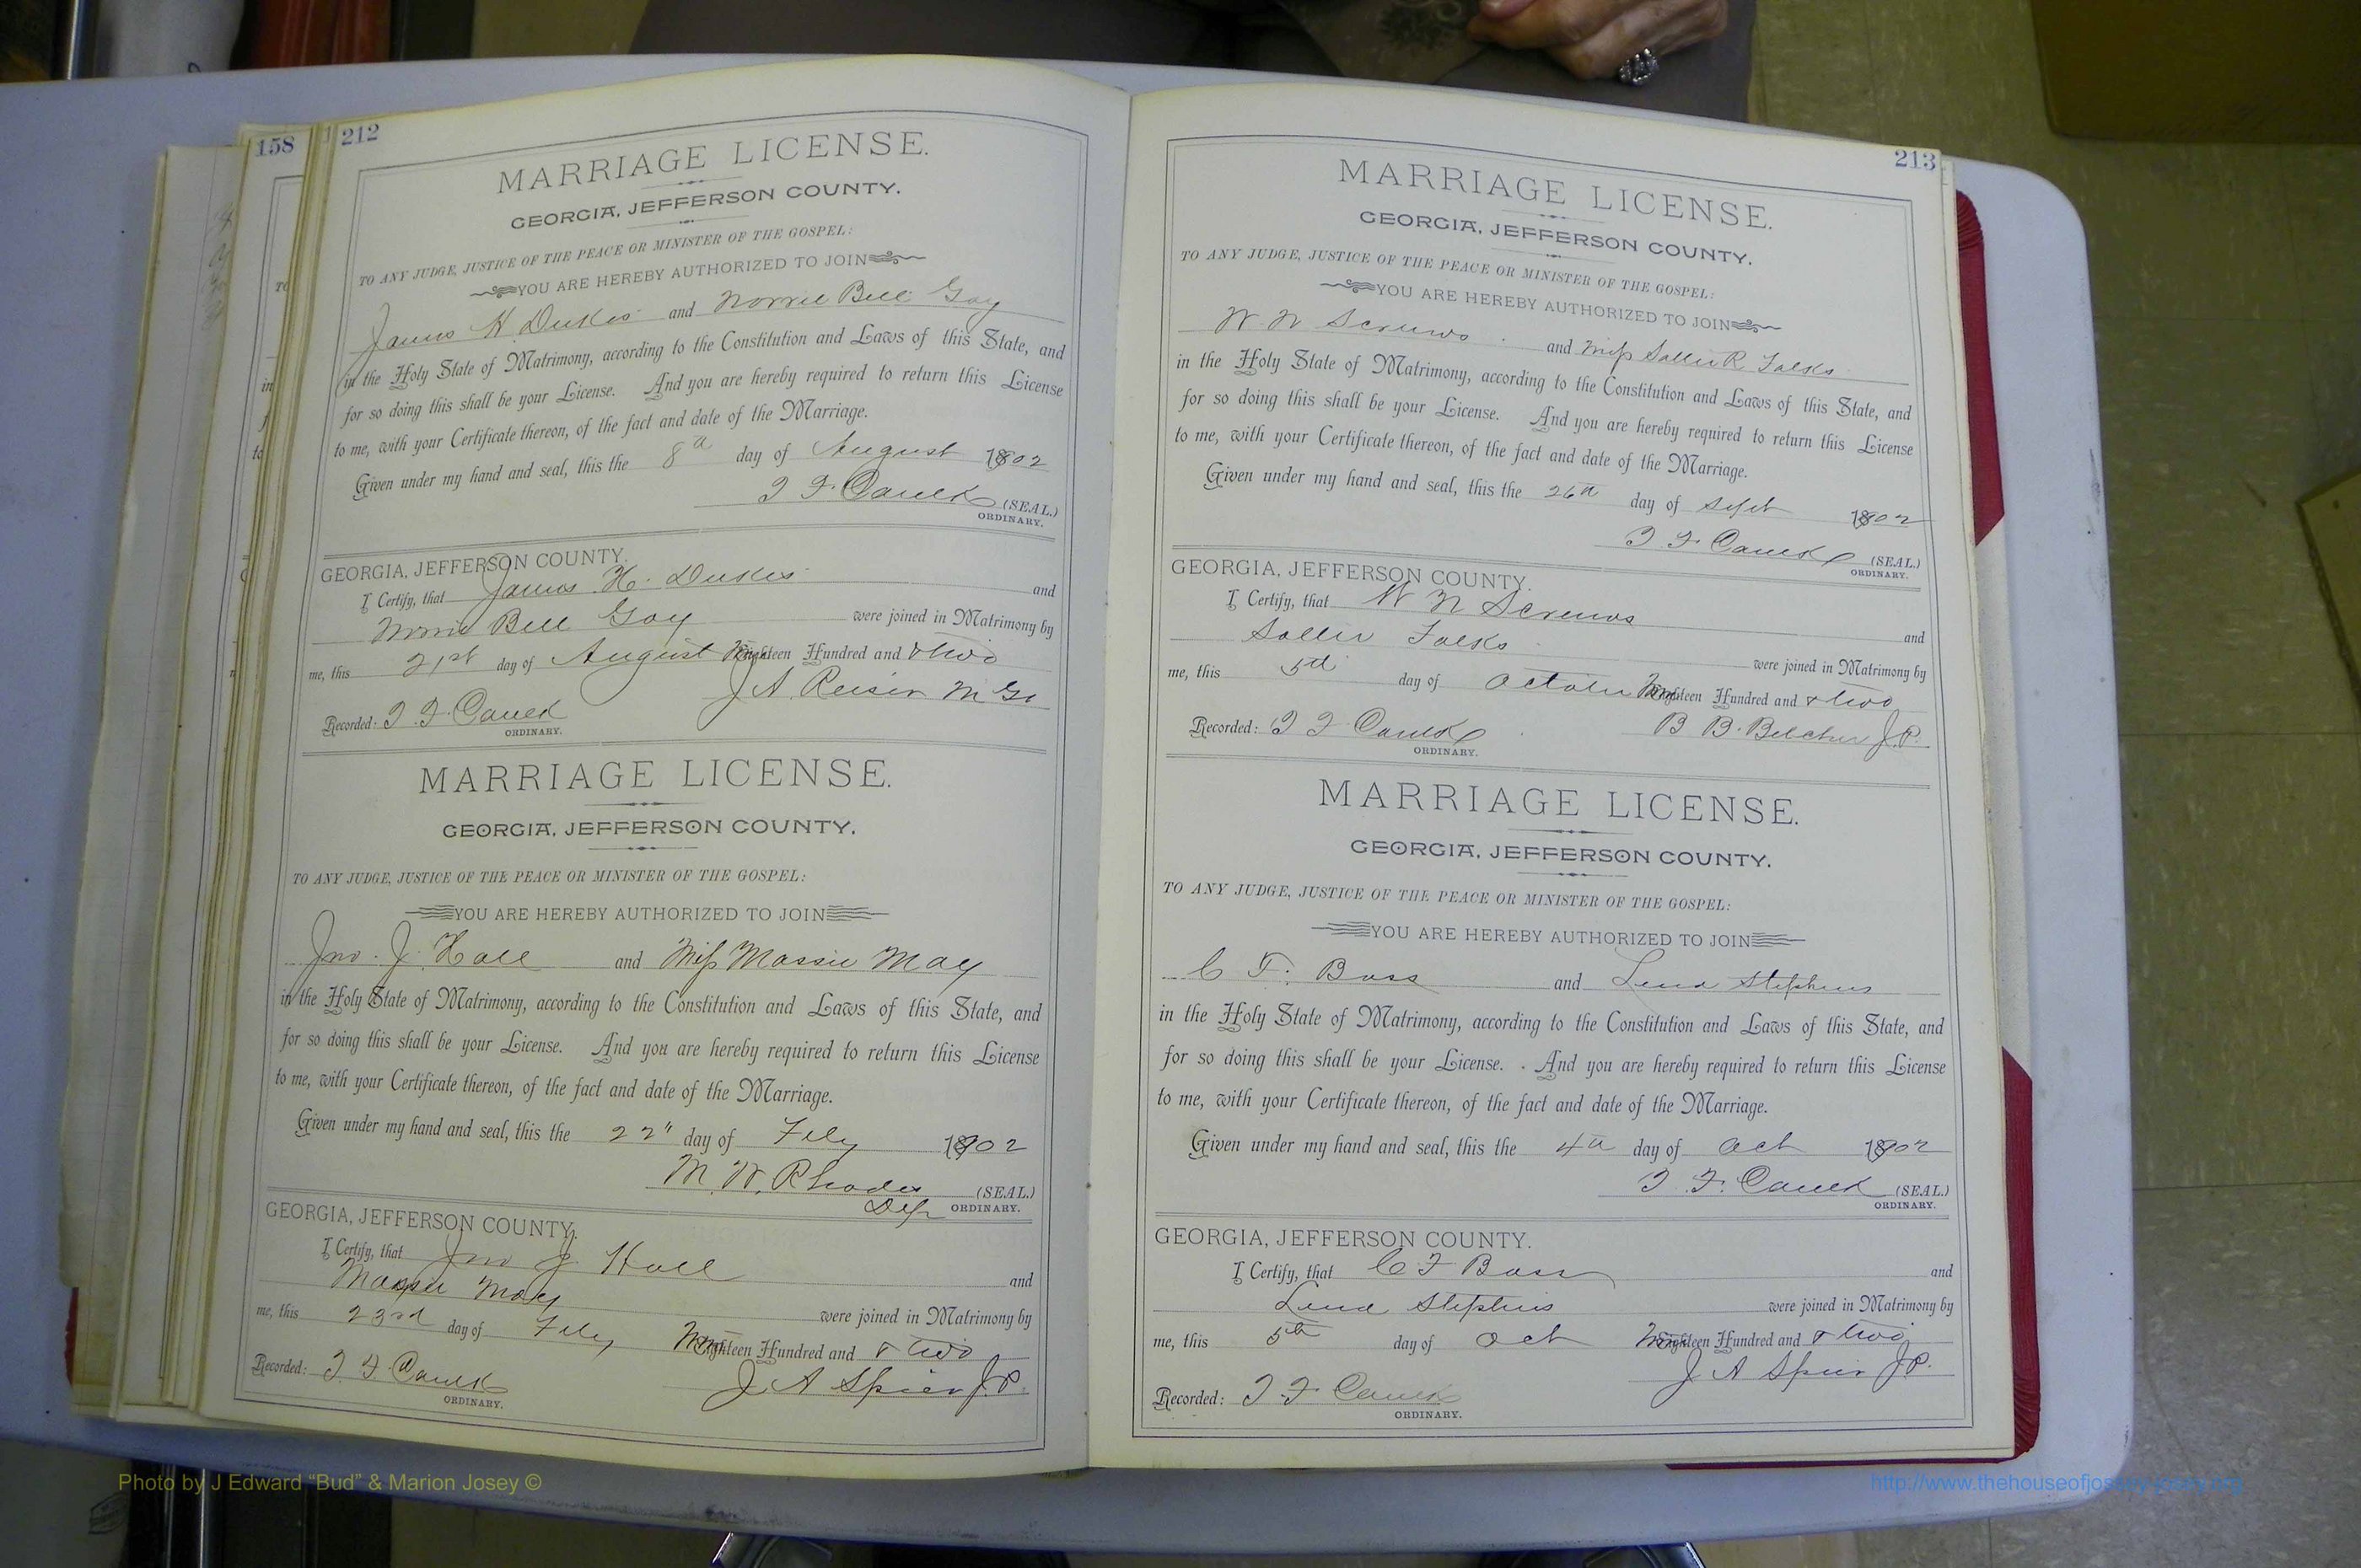 158
212
MARRIAGE LICENSE.
GEORGIA, JEFFERSON COUNTY.
TO ANY JUDGE, JUSTICE OF THE PEACE OR MINISTER OF THE GOSPEL:
YOU ARE HEREBY AUTHORIZED TO JOIN
James H. Dukes and Bell Gay
in the Holy State of Matrimony, according to the Constitution and Laws of this State, and
for so doing this shall be your License. And you are hereby required to return this License
to me, with your Certificate thereon, of the fact and date of the Marriage.
Given under my hand and seal, this the 8th day of August 1902
(SEAL.)
ORDINARY.
GEORGIA, JEFFERSON COUNTY.
I Certify, that James H. Dukes and
Bell Gay were joined in Matrimony by
me, this 21st day of August Nineteen Hundred and & two
J A
Recorded:
ORDINARY.
MARRIAGE LICENSE.
GEORGIA, JEFFERSON COUNTY.
TO ANY JUDGE, JUSTICE OF THE PEACE OR MINISTER OF THE GOSPEL:
YOU ARE HEREBY AUTHORIZED TO JOIN
Jno. J. Hall and Miss Massie May
in the Holy State of Matrimony, according to the Constitution and Laws of this State, and
for so doing this shall be your License. And you are hereby required to return this License
to me, with your Certificate thereon, of the fact and date of the Marriage.
Given under my hand and seal, this the 22" day of Feby 1902
M. W. Rhodes (SEAL.)
Dep ORDINARY.
GEORGIA, JEFFERSON COUNTY.
I Certify, that Jno J. Hall and
Massie May were joined in Matrimony by
me, this 23rd day of Feby Nineteen Hundred and & two
J A Spier J.P.
Recorded:
ORDINARY.
213
MARRIAGE LICENSE.
GEORGIA, JEFFERSON COUNTY.
TO ANY JUDGE, JUSTICE OF THE PEACE OR MINISTER OF THE GOSPEL:
YOU ARE HEREBY AUTHORIZED TO JOIN
W N Screws and Miss Sallie R Folks
in the Holy State of Matrimony, according to the Constitution and Laws of this State, and
for so doing this shall be your License. And you are hereby required to return this License
to me, with your Certificate thereon, of the fact and date of the Marriage.
Given under my hand and seal, this the 26th day of Sept 1902
(SEAL.)
ORDINARY.
GEORGIA, JEFFERSON COUNTY.
I Certify, that W N Screws and
Sallie Folks were joined in Matrimony by
me, this 5th day of October Nineteen Hundred and & two
B B. Belcher J.P.
Recorded:
ORDINARY.
MARRIAGE LICENSE.
GEORGIA, JEFFERSON COUNTY.
TO ANY JUDGE, JUSTICE OF THE PEACE OR MINISTER OF THE GOSPEL:
YOU ARE HEREBY AUTHORIZED TO JOIN
C F. Bass and Lena Stephens
in the Holy State of Matrimony, according to the Constitution and Laws of this State, and
for so doing this shall be your License. And you are hereby required to return this License
to me, with your Certificate thereon, of the fact and date of the Marriage.
Given under my hand and seal, this the 4th day of Oct 1902
(SEAL.)
ORDINARY.
GEORGIA, JEFFERSON COUNTY.
I Certify, that C F Bass and
Lena Stephens were joined in Matrimony by
me, this 5th day of Oct Nineteen Hundred and & two
J A Spier J.P.
Recorded:
ORDINARY.
Photo by J Edward “Bud” & Marion Josey ©